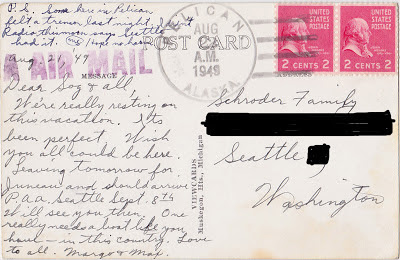 P.S. Some here in Pelican
felt a tremor last night. Isn't
Radio thinnoon says Seattle
had it. (me) Hope no harm
Aug. 21 '49
VIA AIR MAIL
MESSAGE
POST CARD
ADDRESS
PELICAN
AUG
A.M.
1949
ALASKA
UNITED STATES POSTAGE
2 CENTS 2
UNITED STATES POSTAGE
2 CENTS 2
Dear Sog & all,
We're really resting on
this vacation. Its
been perfect. Wish
you all could be here.
Leaving tomorrow for
Juneau and should arrive
P.A.A. Seattle Sept. 8th
Will see you then. One
really needs a boat like you
haul – in this country. Love
to all. Margo & Max.
VIEWCARDS
Muskegon, Hts., Michigan
Schroder Family
Seattle
Washington